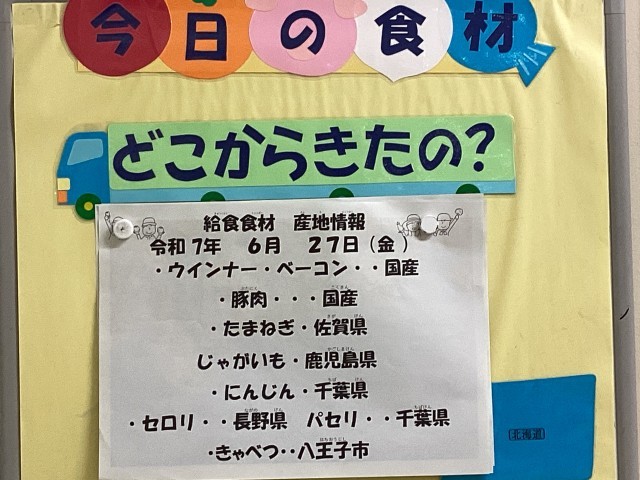 今日の食材
どこからきたの?
給食食材　産地情報
令和7年　6月　27日(金)
・ウインナー・ベーコン・・国産
・豚肉・・・国産
・たまねぎ・佐賀県
じゃがいも・鹿児島県
・にんじん・千葉県
・セロリ・・長野県　パセリ・・千葉県
・きゃべつ・・八王子市
北海道